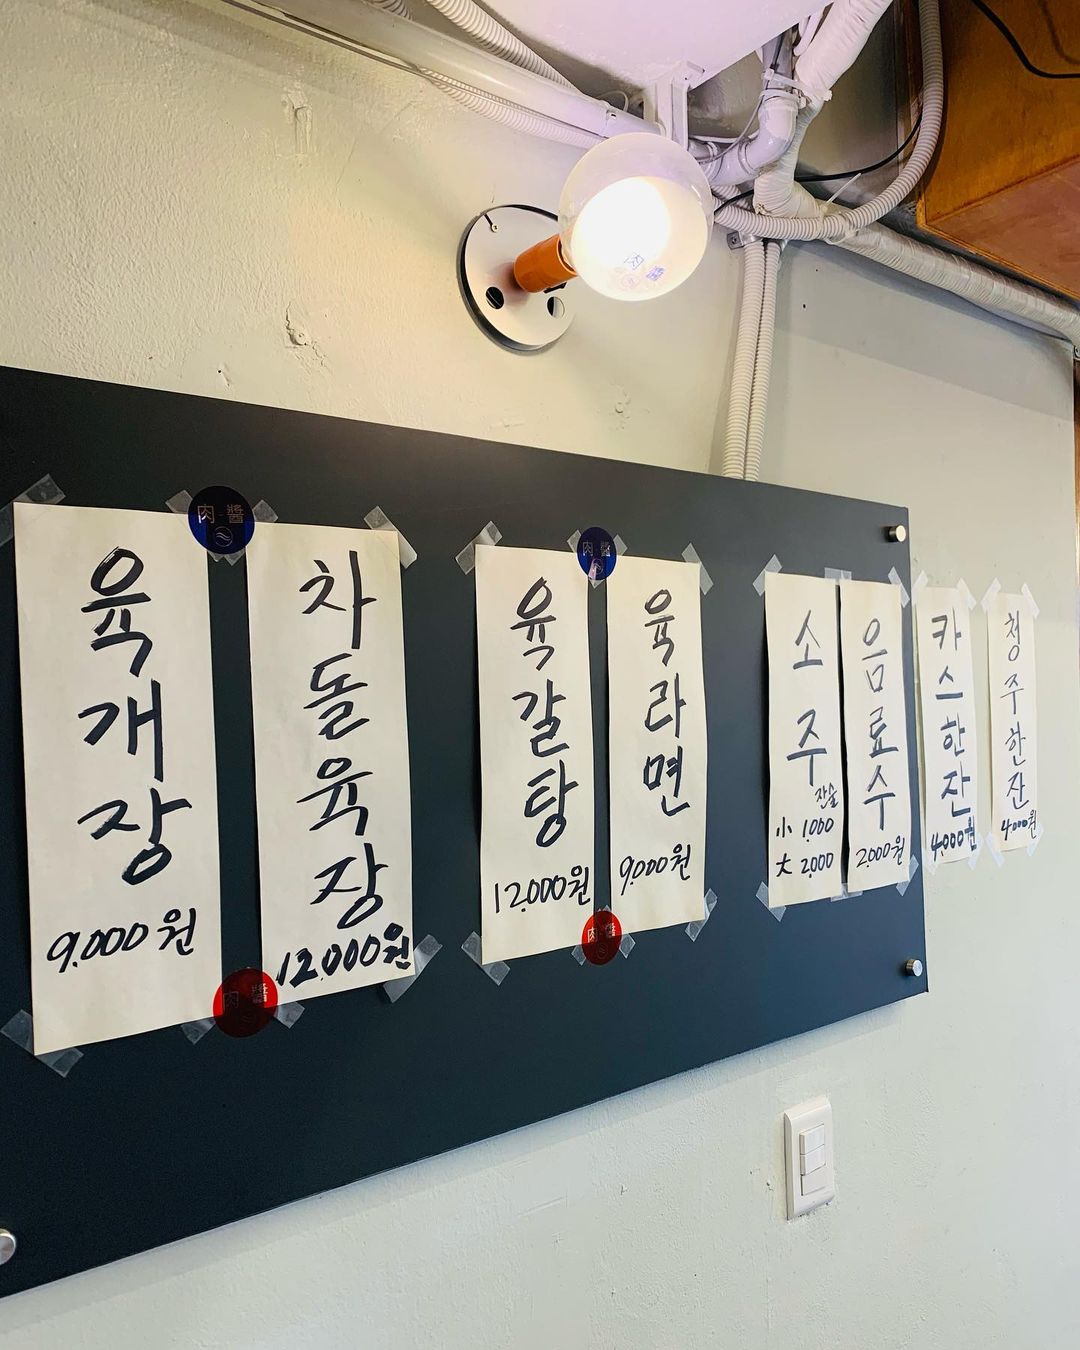 肉醬
육개장
9.000원
차돌육장
12.000원
肉醬
肉醬
육갈탕
12.000원
육라면
9.000원
肉醬
소주
잔술
小 1.000
大 2.000
음료수
2.000원
카스한잔
4.000원
청주한잔
4.000원